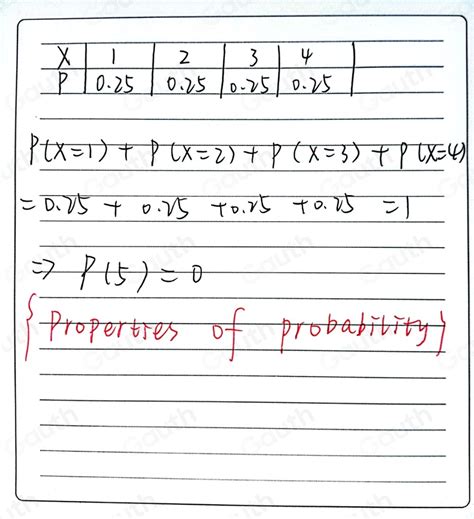 X 1 2 3 4
P 0.25 0.25 0.25 0.25
P(X=1) + P(X=2) + P(X=3) + P(X=4)
= 0.25 + 0.25 +0.25 +0.25 =1
=> P(5) = 0
{Properties of probability}
Gauth